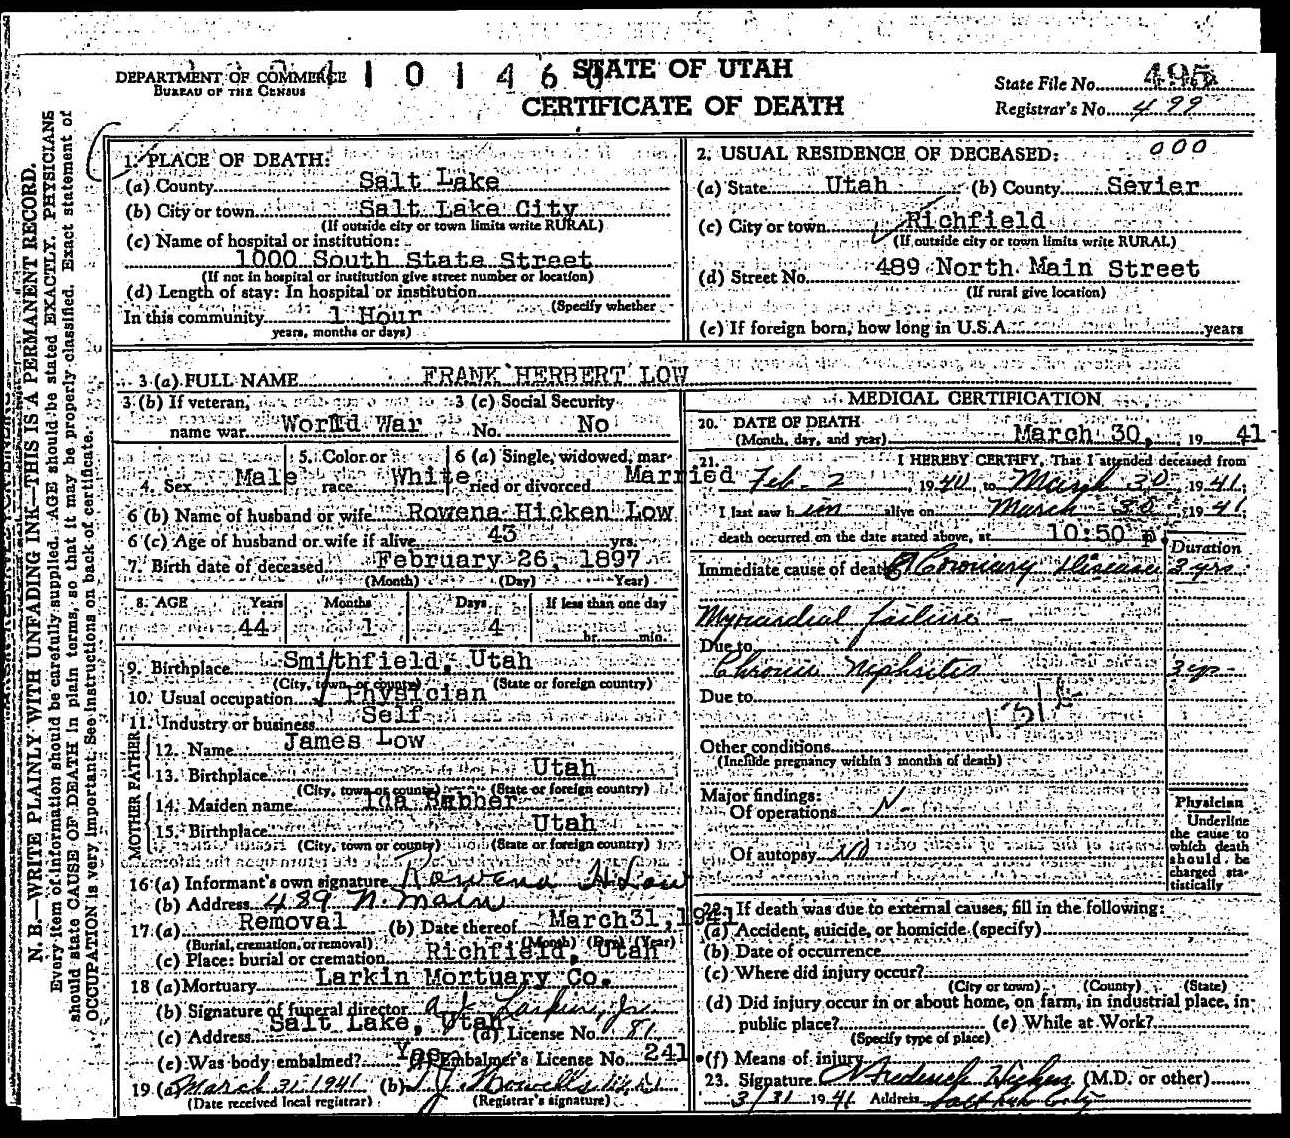 DEPARTMENT OF COMMERCE
BUREAU OF THE CENSUS
1 0 1 4 6 0
STATE OF UTAH
CERTIFICATE OF DEATH
State File No. 495
Registrar's No. 499
N. B.—WRITE PLAINLY WITH UNFADING INK—THIS IS A PERMANENT RECORD.
Every item of information should be carefully supplied. AGE should be stated EXACTLY. PHYSICIANS
should state CAUSE OF DEATH in plain terms, so that it may be properly classified. Exact statement of
OCCUPATION is very important. See instructions on back of certificate.
1. PLACE OF DEATH:
(a) County Salt Lake
(b) City or town Salt Lake City
(If outside city or town limits write RURAL)
(c) Name of hospital or institution:
1000 South State Street
(If not in hospital or institution give street number or location)
(d) Length of stay: In hospital or institution
(Specify whether
In this community 1 Hour
years, months or days)
2. USUAL RESIDENCE OF DECEASED: 000
(a) State Utah (b) County Sevier
(c) City or town Richfield
(If outside city or town limits write RURAL)
(d) Street No. 489 North Main Street
(If rural give location)
(e) If foreign born, how long in U.S.A. years
3 (a) FULL NAME FRANK HERBERT LOW
3 (b) If veteran,
name war World War
3 (c) Social Security
No. No
4. Sex Male
5. Color or
race White
6 (a) Single, widowed, mar-
ried or divorced Married
6 (b) Name of husband or wife Rowena Hicken Low
6 (c) Age of husband or wife if alive 43 yrs.
7. Birth date of deceased February 26, 1897
(Month) (Day) Year)
8. AGE Years Months Days If less than one day
44 1 4 hr. min.
9. Birthplace Smithfield, Utah
(City, town or county) (State or foreign country)
10. Usual occupation Physician
11. Industry or business Self
FATHER
12. Name James Low
13. Birthplace Utah
(City, town or county) (State or foreign country)
MOTHER
14. Maiden name Ida
15. Birthplace Utah
(City, town or county) (State or foreign country)
16 (a) Informant's own signature Rowena H Low
(b) Address 489 N. Main
17 (a) Removal (b) Date thereof March 31, 1941
(Burial, cremation, or removal) (Month) (Day) (Year)
(c) Place: burial or cremation Richfield, Utah
18 (a) Mortuary Larkin Mortuary Co.
(b) Signature of funeral director Larkin, Jr.
(c) Address Salt Lake, Utah (d) License No. 81
(e) Was body embalmed? Yes (f) Embalmer's License No. 241
19 (a) March 31 1941 (b)
(Date received local registrar) (Registrar's signature)
MEDICAL CERTIFICATION
20. DATE OF DEATH
(Month, day, and year) March 30, 19 41
21. I HEREBY CERTIFY, That I attended deceased from
Feb - 2 1940, to March 30 1941.
I last saw him alive on March 30, 1941
death occurred on the date stated above, at 10:50 p.
Duration
Immediate cause of death Coronary Disease 3 yrs.
Myocardial failure -
Due to
Chronic Nephritis 3 yr -
Due to
Other conditions
(Include pregnancy within 3 months of death)
Major findings:
Of operations N-
Of autopsy No
Physician
Underline
the cause to
which death
should be
charged sta-
tistically
22. If death was due to external causes, fill in the following:
(a) Accident, suicide, or homicide (specify)
(b) Date of occurrence
(c) Where did injury occur?
(City or town) (County) (State)
(d) Did injury occur in or about home, on farm, in industrial place, in
public place? (e) While at Work?
(Specify type of place)
(f) Means of injury
23. Signature Frederick Hicken (M.D. or other)
3/31 1941 Address Salt Lake City